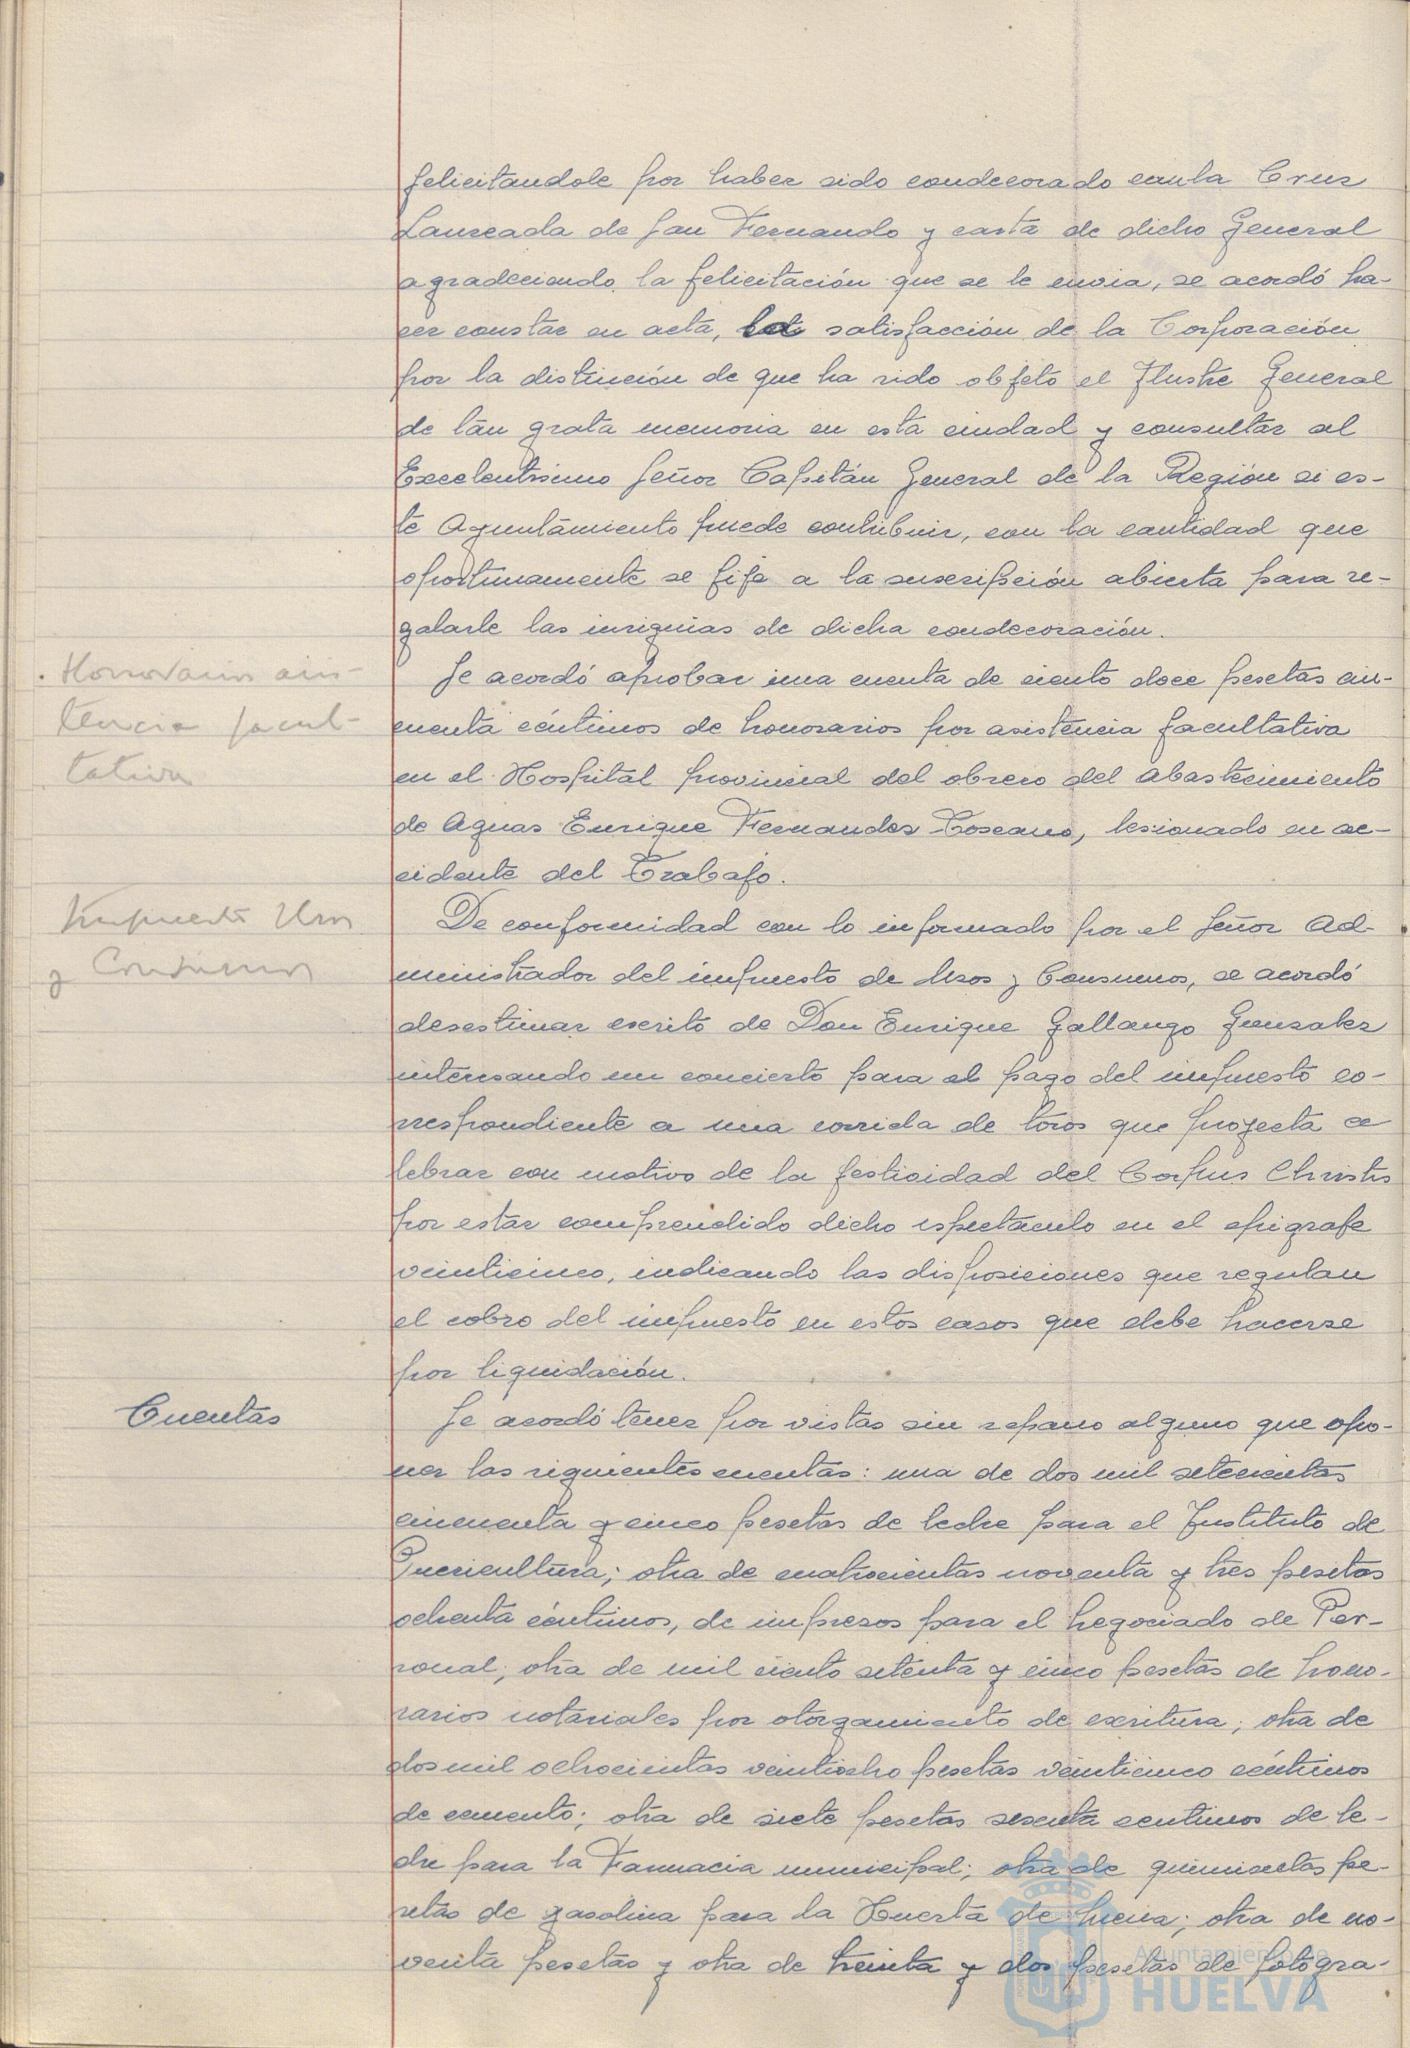 felicitandole por haber sido condecorado con la Cruz
Laureada de San Fernando y carta de dicho General
agradeciendo la felicitación que se le envia, se acordó ha-
cer constar en acta, la satisfacción de la Corporación
por la distinción de que ha sido objeto el Ilustre General
de tan grata memoria en esta ciudad y consultar al
Excelentísimo Señor Capitán General de la Región si es-
te Ayuntamiento puede contribuir, con la cantidad que
oportunamente se fije a la suscripción abierta para re-
galarle las insignias de dicha condecoración.
Honorarios asis-
tencia facul-
tativa
Se acordó aprobar una cuenta de ciento doce pesetas cin-
cuenta céntimos de honorarios por asistencia facultativa
en el Hospital provincial del obrero del abastecimiento
de Aguas Enrique Fernandez Toscano, lesionado en ac-
cidente del Trabajo.
Impuesto Usos
y Consumos
De conformidad con lo informado por el Señor Ad-
ministrador del impuesto de Usos y Consumos, se acordó
desestimar escrito de Don Enrique Gallango Gonzalez
interesando un concierto para el pago del impuesto co-
rrespondiente a una corrida de toros que proyecta ce
lebrar con motivo de la festividad del Corpus Christis
por estar comprendido dicho espectáculo en el epigrafe
veinticinco, indicando las disposiciones que regulan
el cobro del impuesto en estos casos que debe hacerse
por liquidación.
Cuentas
Se acordó tener por vistas sin reparo alguno que opo-
ner las siguientes cuentas: una de dos mil setecientas
cincuenta y cinco pesetas de leche para el Instituto de
Puericultura; otra de cuatrocientas noventa y tres pesetas
ochenta céntimos, de impresos para el negociado de Per-
sonal; otra de mil ciento setenta y cinco pesetas de hono-
rarios notariales por otorgamiento de escritura; otra de
dos mil ochocientas veintiocho pesetas veinticinco céntimos
de cemento; otra de siete pesetas sesenta centimos de le-
che para la Farmacia municipal; otra de quinientas pe-
setas de gasolina para la Huerta de Mena; otra de no-
venta pesetas y otra de treinta y dos pesetas de fotogra-
Ayuntamiento de
HUELVA